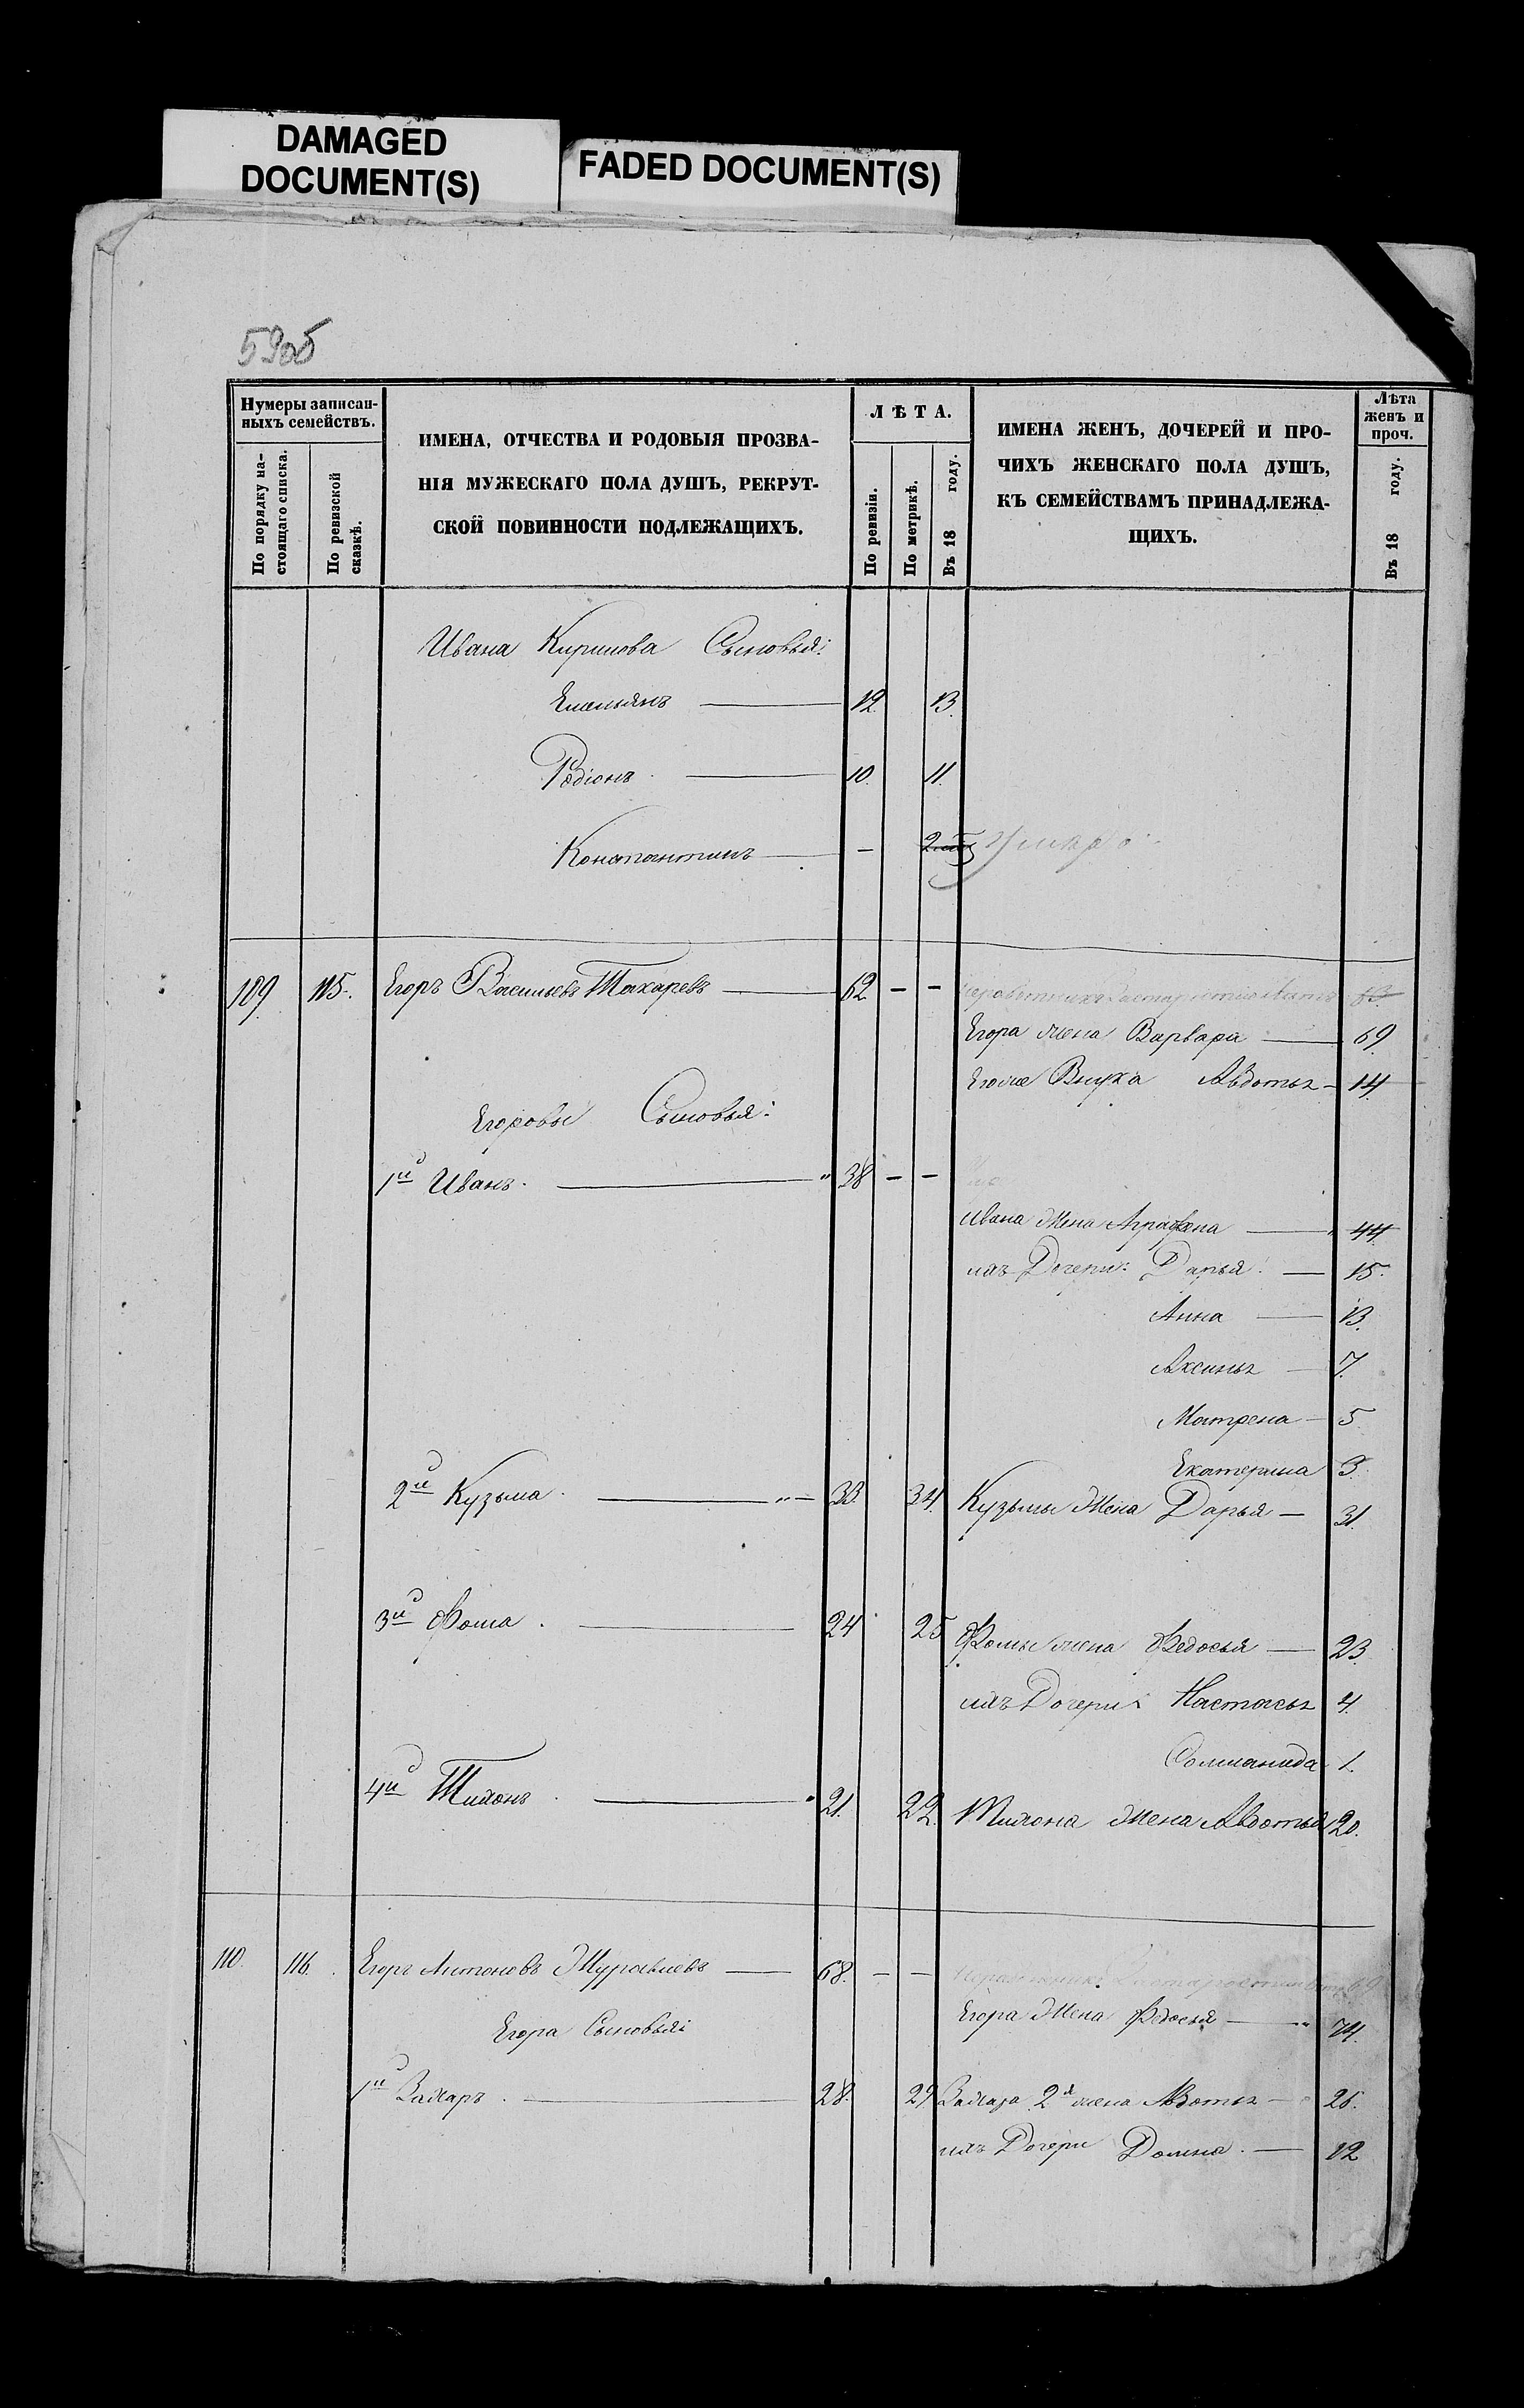 DAMAGED
DOCUMENT(S)
FADED DOCUMENT(S)
59об
Нумеры записан-
ныхъ семействъ.
По порядку на-
стоящаго списка.
По ревизской
сказкѣ.
ИМЕНА, ОТЧЕСТВА И РОДОВЫЯ ПРОЗВА-
НІЯ МУЖЕСКАГО ПОЛА ДУШЪ, РЕКРУТ-
СКОЙ ПОВИННОСТИ ПОДЛЕЖАЩИХЪ.
ЛѢТА.
По ревизіи.
По метрикѣ.
Въ 18 году.
ИМЕНА ЖЕНЪ, ДОЧЕРЕЙ И ПРО-
ЧИХЪ ЖЕНСКАГО ПОЛА ДУШЪ,
КЪ СЕМЕЙСТВАМЪ ПРИНАДЛЕЖА-
ЩИХЪ.
Лѣта
женъ и
проч.
Въ 18 году.
Ивана Кирилова Сыновья:
Емельянъ — 12. 13.
Родіонъ — 10. 11.
Константинъ — — умеръ
109 115. Егоръ Васильевъ Токаревъ — 62 — — 63
Егора жена Варвара — 69.
Внука Авдотья — 14.
Егоровы Сыновья:
1й Иванъ. — 38 — —
Ивана Жена Аграфена — 44.
ихъ Дочери: Дарья. — 15.
Анна — 13.
Аксинья — 7.
Матрена — 5.
Екатерина 3.
2й Кузьма. — 33. 34. Кузьмы Жена Дарья — 31.
3й Фома. — 24 25 Фомы жена Федосья — 23.
ихъ Дочери: Настасья 4.
Соломанида 1.
4й Тихонъ. — 21. 22. Тихона Жена Авдотья 20.
110. 116. Егоръ Антоновъ Журавлевъ — 68. — — 69
Егора Жена Федосья — 74.
Егора Сыновья:
1й Захаръ. — 28. 29 Захара 2я жена Авдотья — 26.
ихъ Дочери Домна. — 12